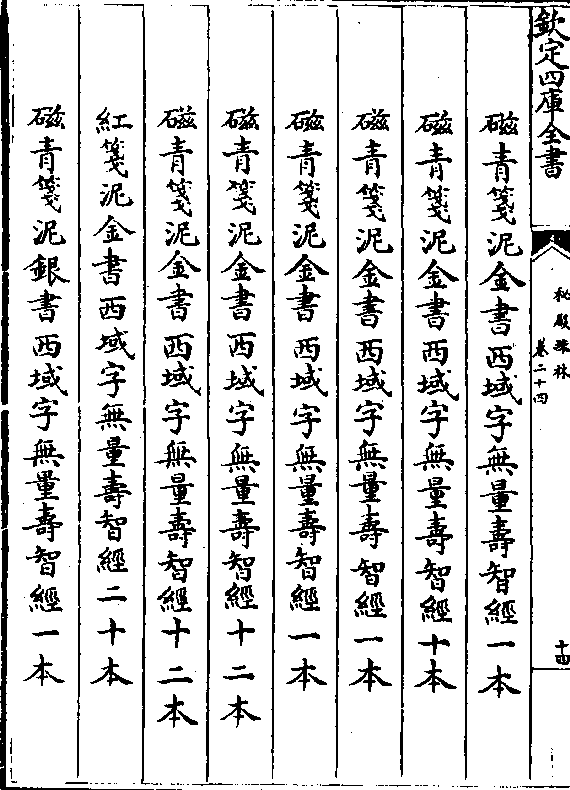 欽定四庫全書
秘殿珠林
卷二十四
十四
磁青箋泥金書西域字無量壽智經一本
磁青箋泥金書西域字無量壽智經十本
磁青箋泥金書西域字無量壽智經一本
磁青箋泥金書西域字無量壽智經一本
磁青箋泥金書西域字無量壽智經十二本
磁青箋泥金書西域字無量壽智經十二本
紅箋泥金書西域字無量壽智經二十本
磁青箋泥銀書西域字無量壽智經一本